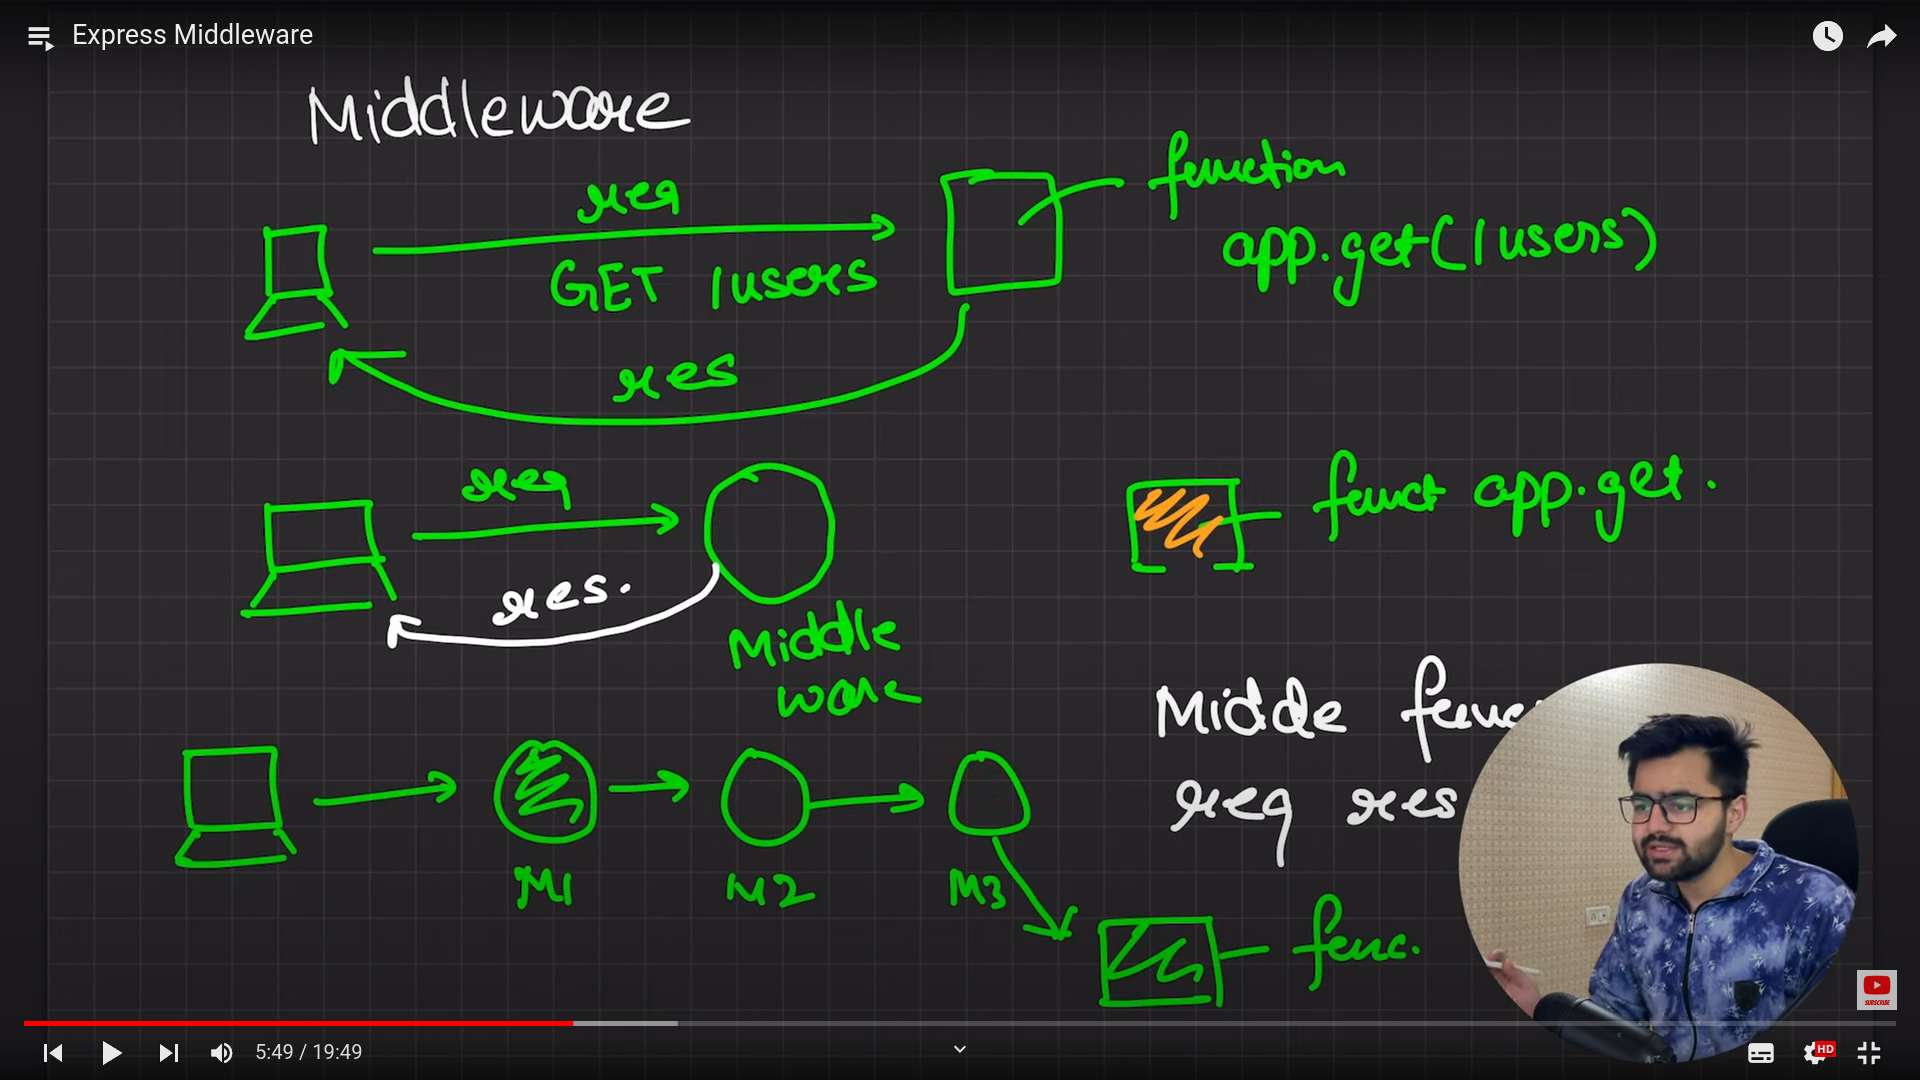 Express Middleware
Middleware
req
GET /users
res
function
app.get(/users)
req
res.
Middle
ware
funct app.get.
Midde func
req res
M1
M2
M3
func.
SUBSCRIBE
5:49 / 19:49
HD